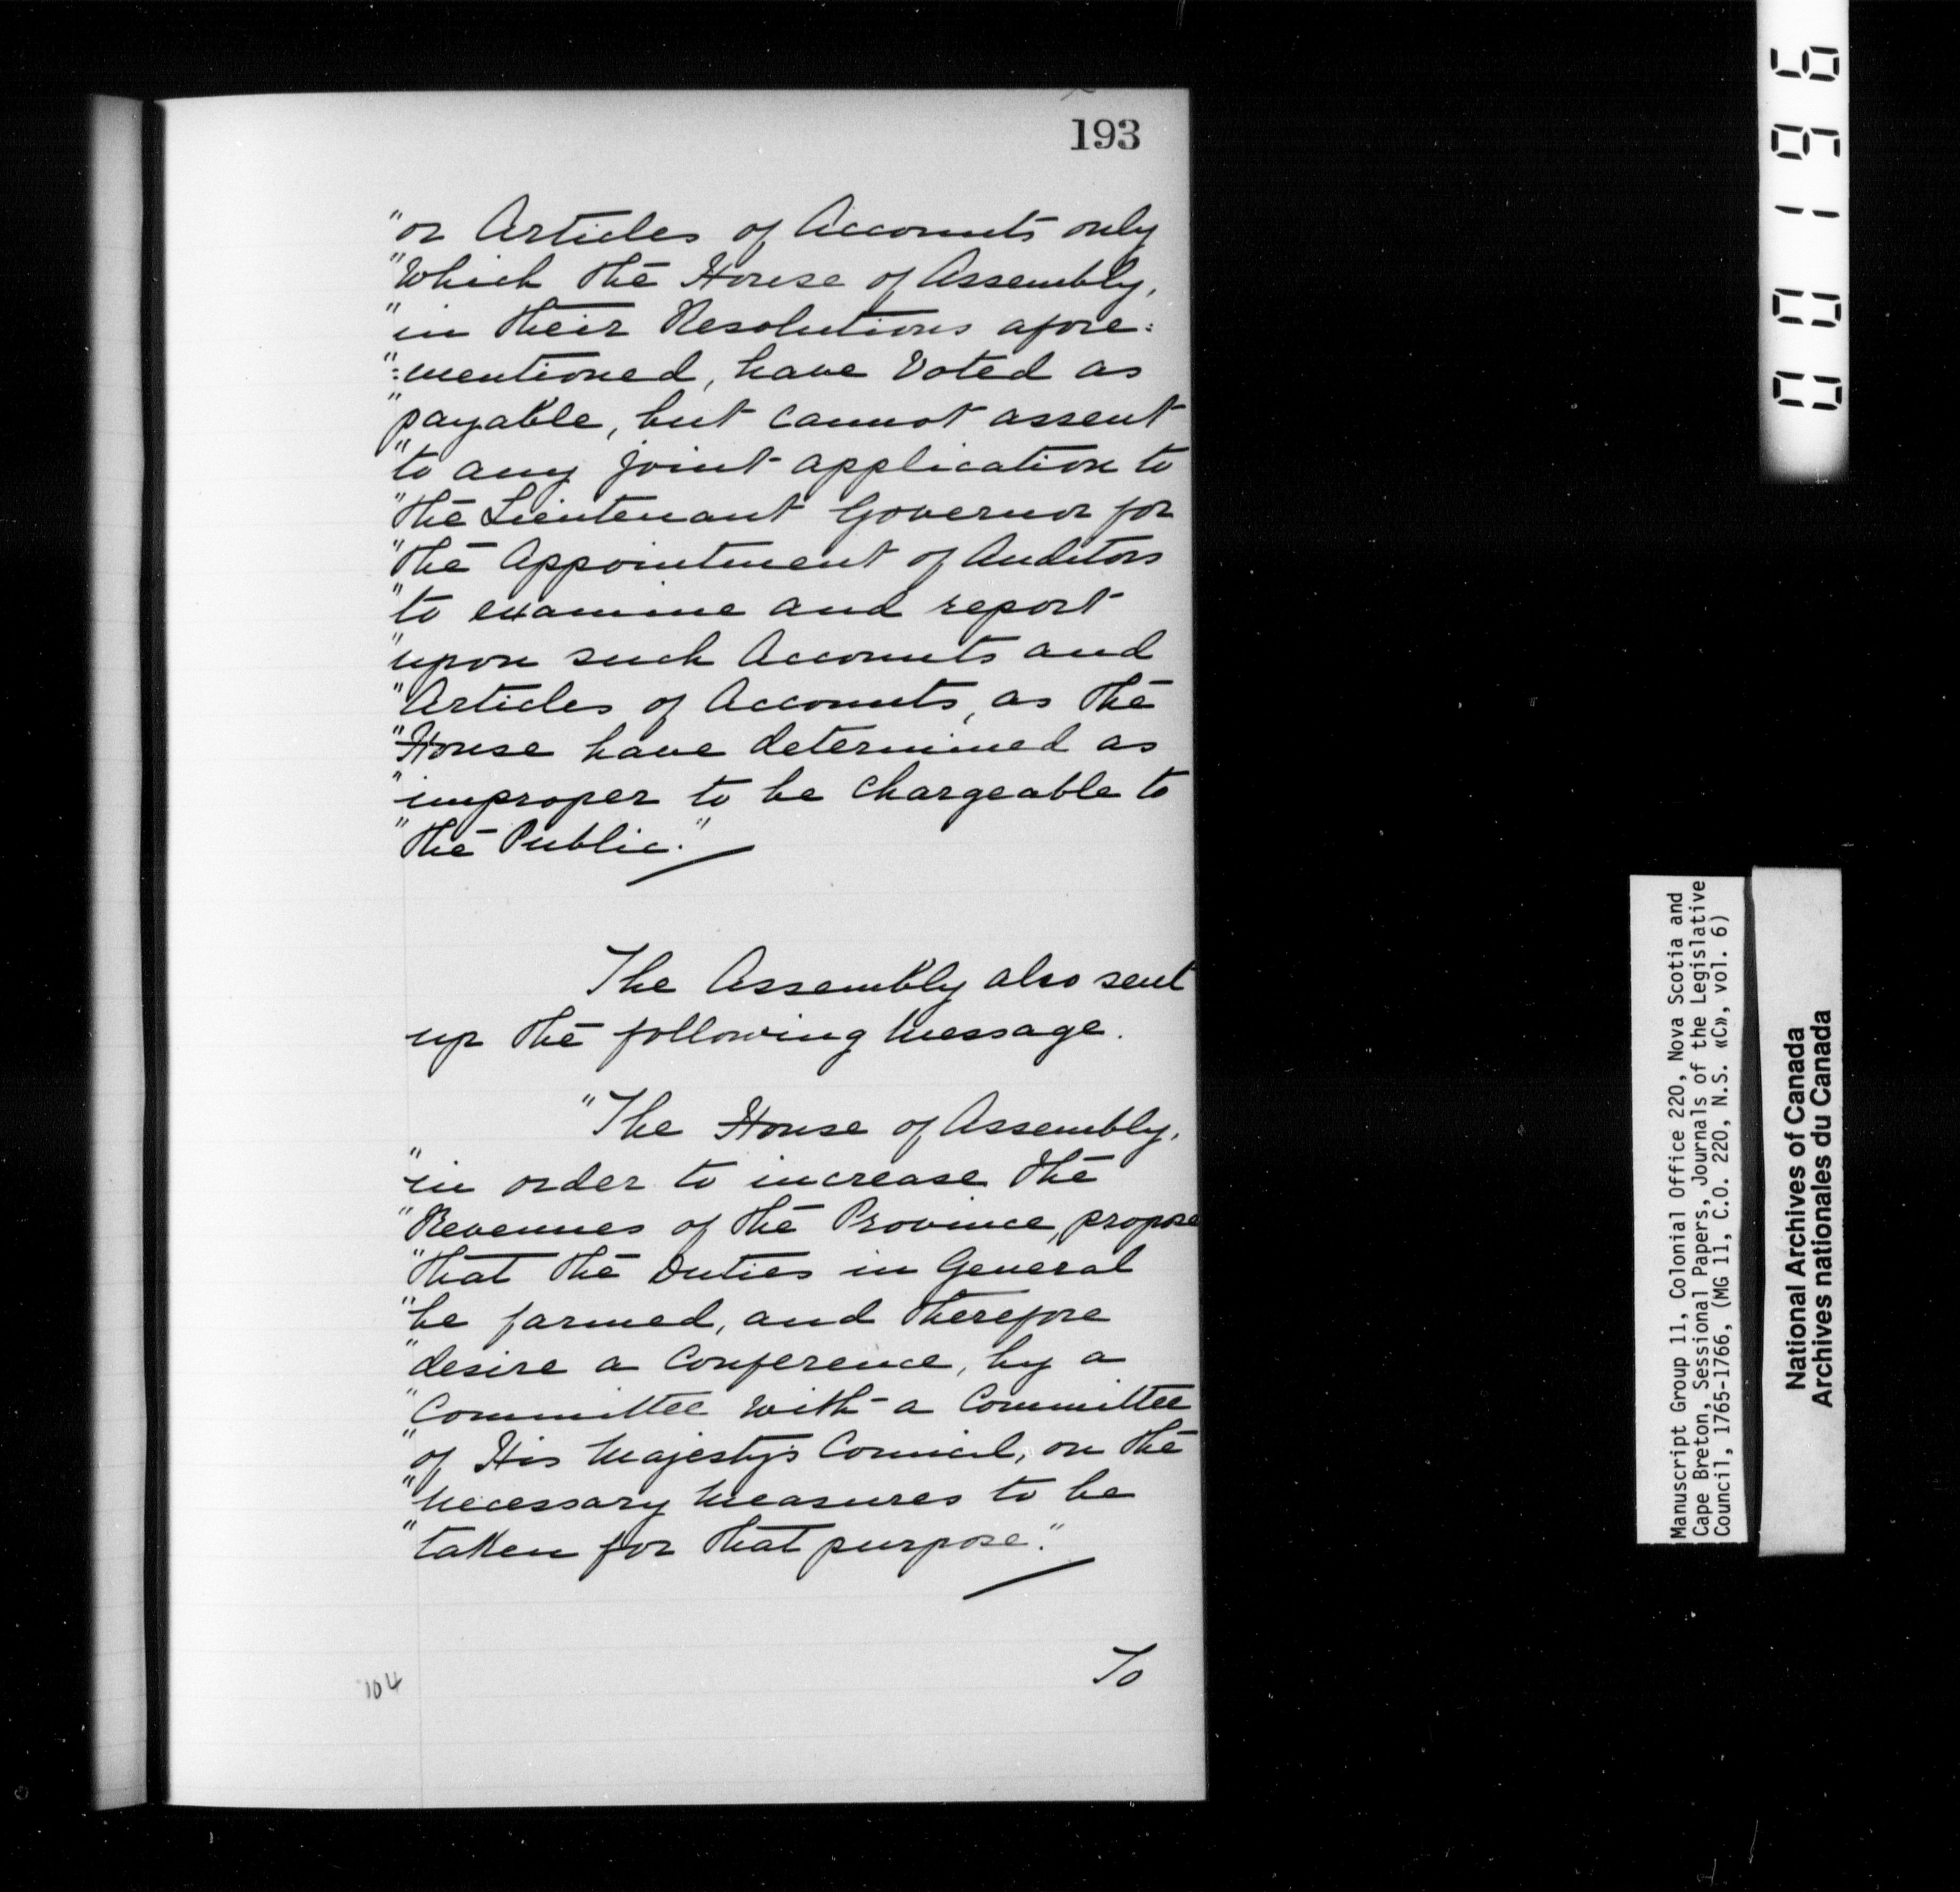 193
"or Articles of Accounts only
"Which the House of Assembly,
"in their Resolutions afore:
":mentioned, have Voted as
"payable, but cannot assent
"to any joint application to
"the Lieutenant Governor for
"the Appointment of Auditors
"to examine and report
"upon such Accounts and
"Articles of Accounts, as the
"House have determined as
"improper to be chargeable to
"the Public."
The Assembly also sent
up the following Message.
"The House of Assembly,
"in order to increase the
"Revenues of the Province, propose
"that the Duties in General
"be farmed, and therefore
"desire a Conference, by a
"Committee with a Committee
"of His Majesty's Council, on the
"necessary Measures to be
"taken for that purpose."
To
104
00196
Manuscript Group 11, Colonial Office 220, Nova Scotia and
Cape Breton, Sessional Papers, Journals of the Legislative
Council, 1765-1766, (MG 11, C.O. 220, N.S. «C», vol. 6)
National Archives of Canada
Archives nationales du Canada